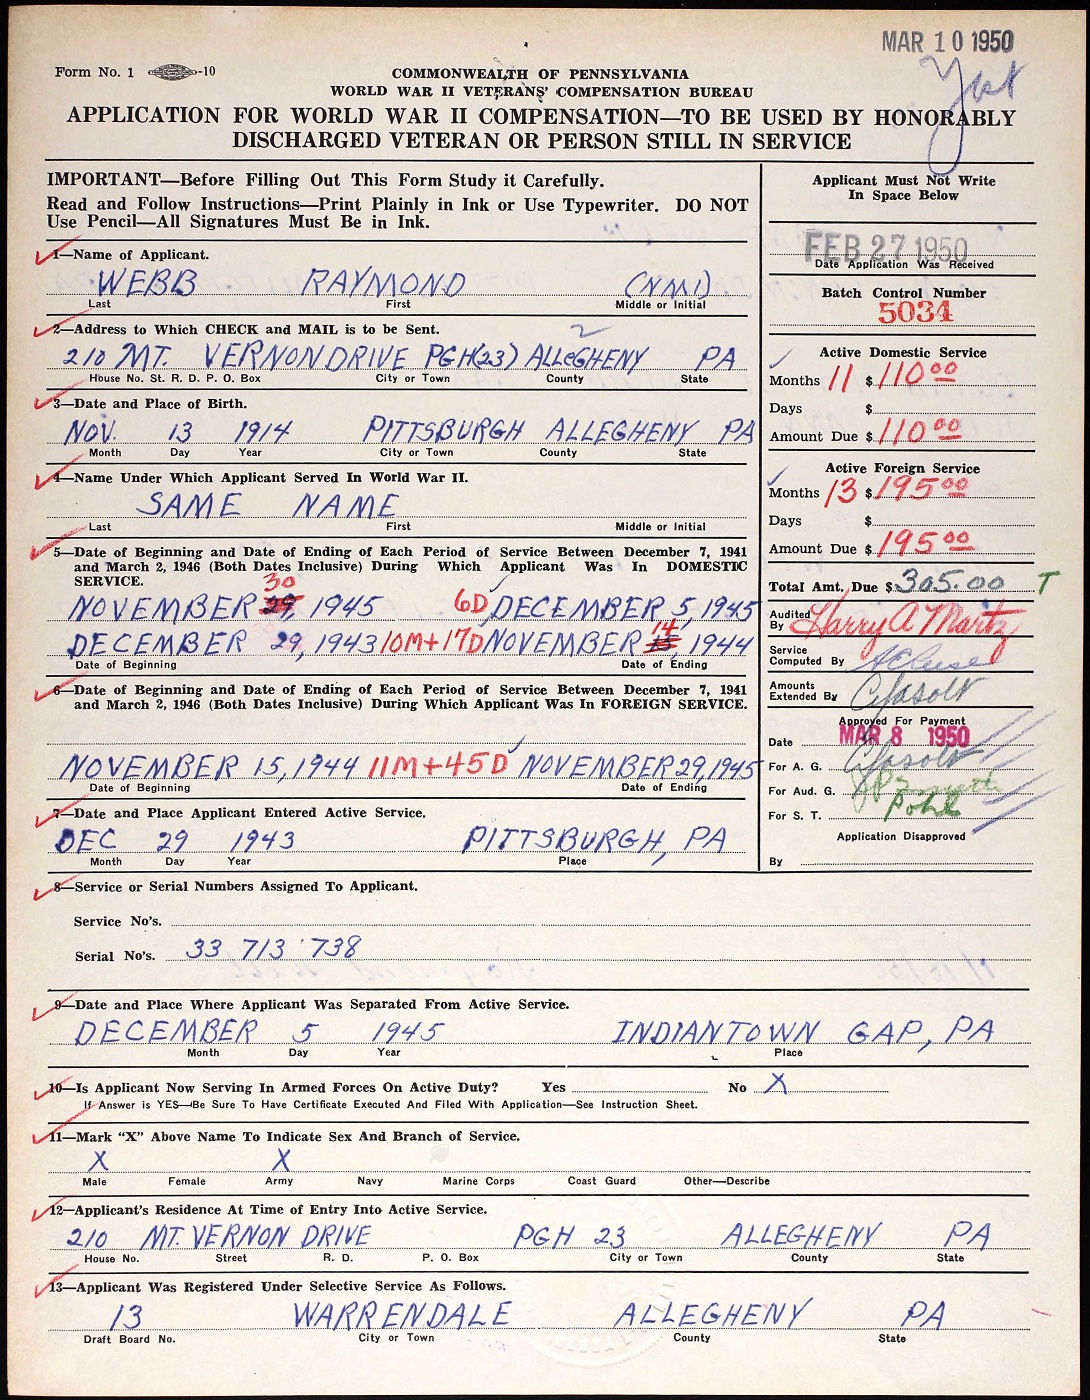 MAR 10 1950
Form No. 1 -10
COMMONWEALTH OF PENNSYLVANIA
WORLD WAR II VETERANS' COMPENSATION BUREAU
APPLICATION FOR WORLD WAR II COMPENSATION—TO BE USED BY HONORABLY
DISCHARGED VETERAN OR PERSON STILL IN SERVICE
IMPORTANT—Before Filling Out This Form Study it Carefully.
Read and Follow Instructions—Print Plainly in Ink or Use Typewriter. DO NOT
Use Pencil—All Signatures Must Be in Ink.
1—Name of Applicant.
WEBB RAYMOND (NMI)
Last First Middle or Initial
2—Address to Which CHECK and MAIL is to be Sent. 2
210 MT. VERNON DRIVE PGH(23) ALLEGHENY PA
House No. St. R. D. P. O. Box City or Town County State
3—Date and Place of Birth.
NOV. 13 1914 PITTSBURGH ALLEGHENY PA
Month Day Year City or Town County State
4—Name Under Which Applicant Served In World War II.
SAME NAME
Last First Middle or Initial
5—Date of Beginning and Date of Ending of Each Period of Service Between December 7, 1941
and March 2, 1946 (Both Dates Inclusive) During Which Applicant Was In DOMESTIC
SERVICE.
30
NOVEMBER 29, 1945 6D DECEMBER 5, 1945
14
DECEMBER 29, 1943 10M+17D NOVEMBER 15, 1944
Date of Beginning Date of Ending
6—Date of Beginning and Date of Ending of Each Period of Service Between December 7, 1941
and March 2, 1946 (Both Dates Inclusive) During Which Applicant Was In FOREIGN SERVICE.
NOVEMBER 15, 1944 11M+45D NOVEMBER 29, 1945
Date of Beginning Date of Ending
7—Date and Place Applicant Entered Active Service.
DEC 29 1943 PITTSBURGH, PA
Month Day Year Place
Applicant Must Not Write
In Space Below
FEB 27 1950
Date Application Was Received
Batch Control Number
5034
Active Domestic Service
Months 11 $ 110 00
Days $
Amount Due $ 110 00
Active Foreign Service
Months 13 $ 195 00
Days $
Amount Due $ 195 00
Total Amt. Due $ 305.00 T
Audited
By Harry A Martz
Service
Computed By
Amounts
Extended By
Approved For Payment
Date MAR 8 1950
For A. G.
For Aud. G.
For S. T.
Application Disapproved
By
8—Service or Serial Numbers Assigned To Applicant.
Service No's.
Serial No's. 33 713 738
9—Date and Place Where Applicant Was Separated From Active Service.
DECEMBER 5 1945 INDIANTOWN GAP, PA
Month Day Year Place
10—Is Applicant Now Serving In Armed Forces On Active Duty? Yes No X
If Answer is YES—Be Sure To Have Certificate Executed And Filed With Application—See Instruction Sheet.
11—Mark "X" Above Name To Indicate Sex And Branch of Service.
X X
Male Female Army Navy Marine Corps Coast Guard Other—Describe
12—Applicant's Residence At Time of Entry Into Active Service.
210 MT. VERNON DRIVE PGH 23 ALLEGHENY PA
House No. Street R. D. P. O. Box City or Town County State
13—Applicant Was Registered Under Selective Service As Follows.
13 WARRENDALE ALLEGHENY PA
Draft Board No. City or Town County State